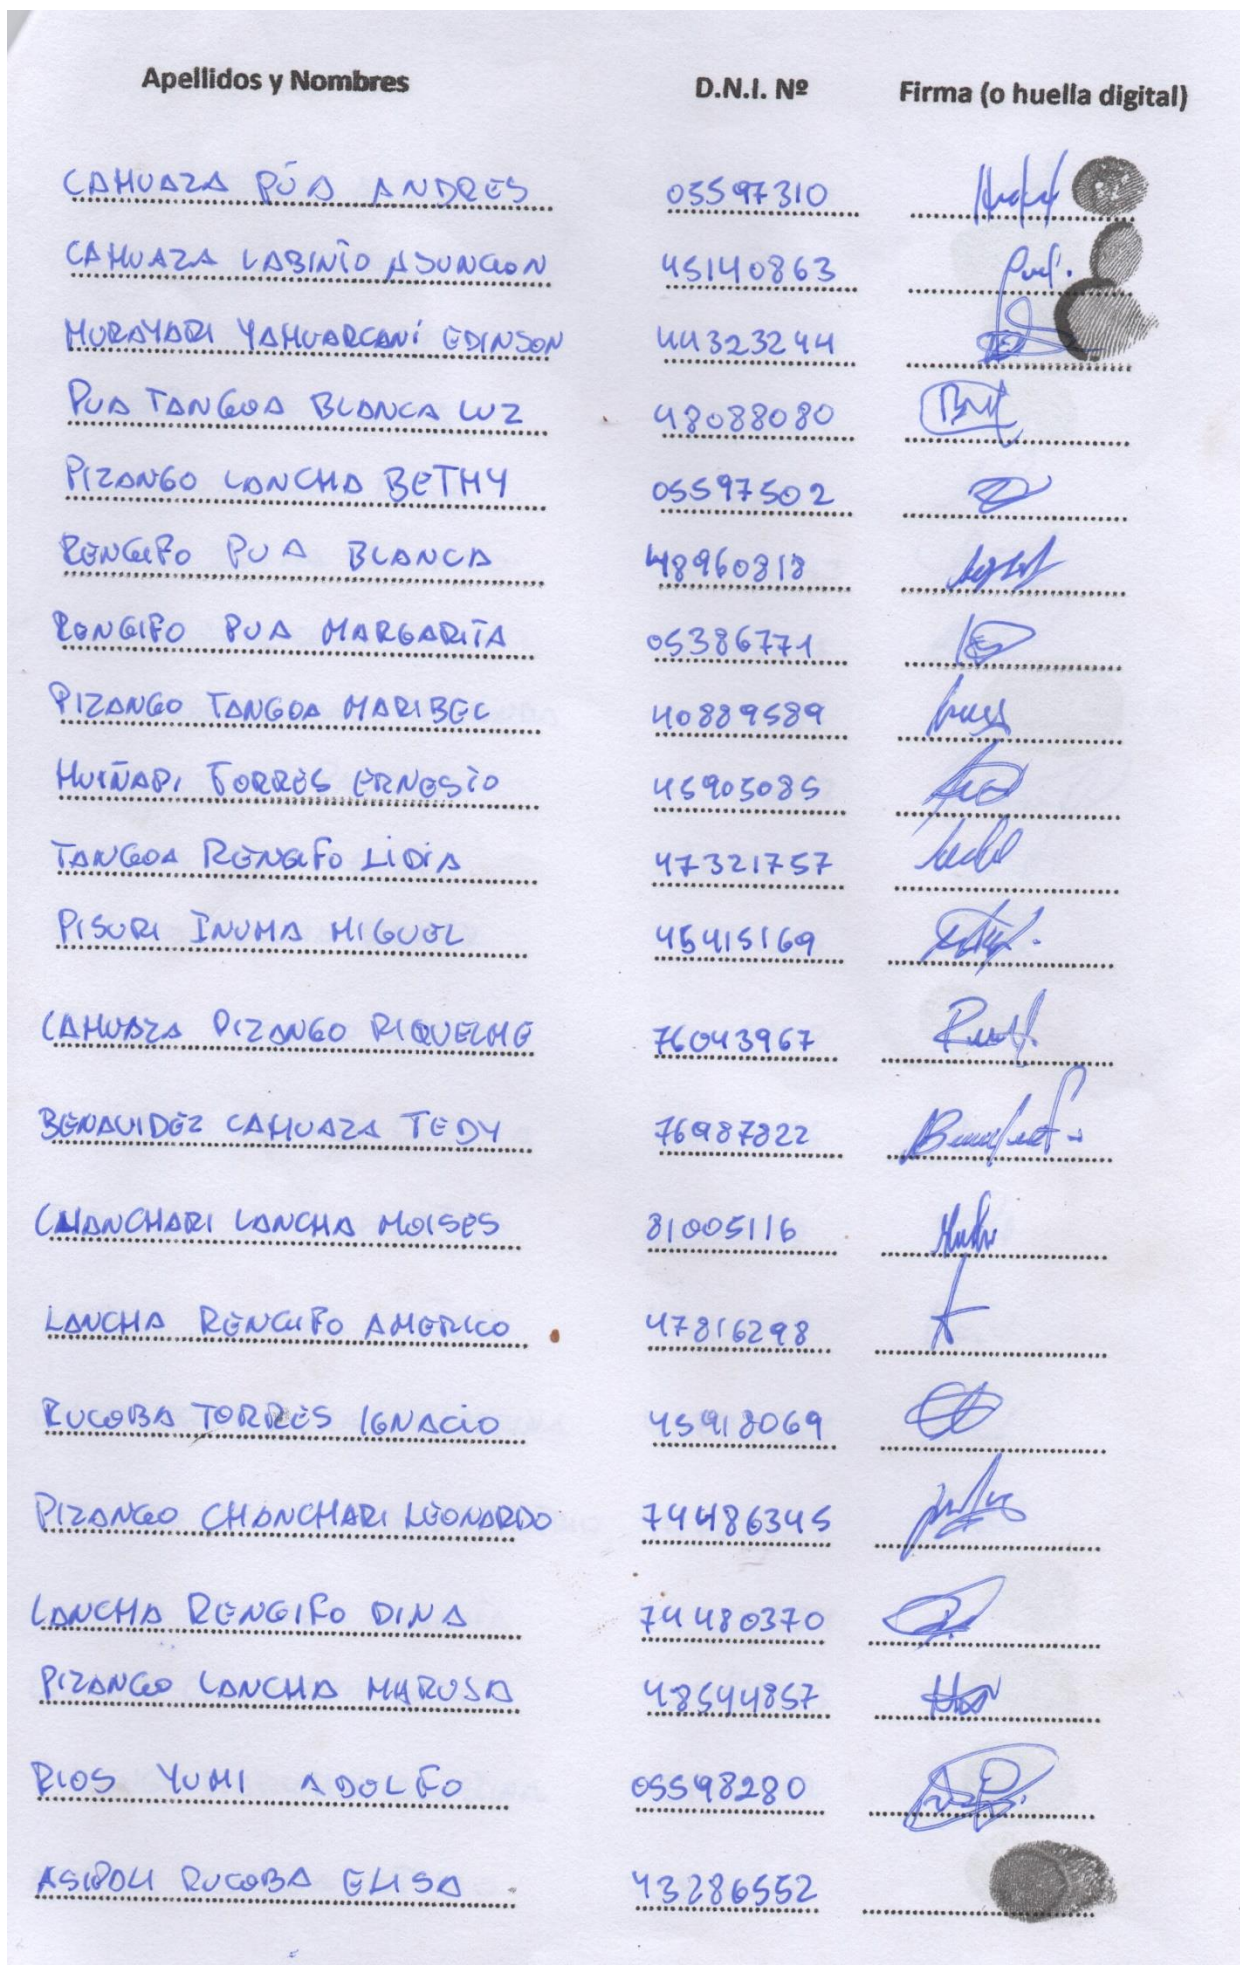 Apellidos y Nombres D.N.I. Nº Firma (o huella digital)
CAHUAZA PÚA ANDRES 05597310
CAHUAZA LABINTO ASUNCION 45140863
MURAYARI YAHUARCANÍ EDINSON 44323244
PUA TANGOA BLANCA LUZ 48088080
PIZANGO LANCHA BETHY 05597502
RENGIFO PUA BLANCA 48960818
RENGIFO PUA MARGARITA 05386771
PIZANGO TANGOA MARIBEL 40889589
HUIÑAPI TORRES ERNESTO 45905085
TANGOA RENGIFO LIDIA 47321757
PISURI INUMA MIGUEL 45415169
CAHUAZA PIZANGO RIQUELME 76043967
BENAVIDEZ CAHUAZA TEDY 76987822
CHANCHARI LANCHA MOISES 81005116
LANCHA RENGIFO AMERICO 47816298
RUCOBA TORRES IGNACIO 45918069
PIZANGO CHANCHARI LEONARDO 74486345
LANCHA RENGIFO DINA 74480370
PIZANGO LANCHA MARUSA 48544857
RIOS YUMI ADOLFO 05598280
RUCOBA ELISA 43286552